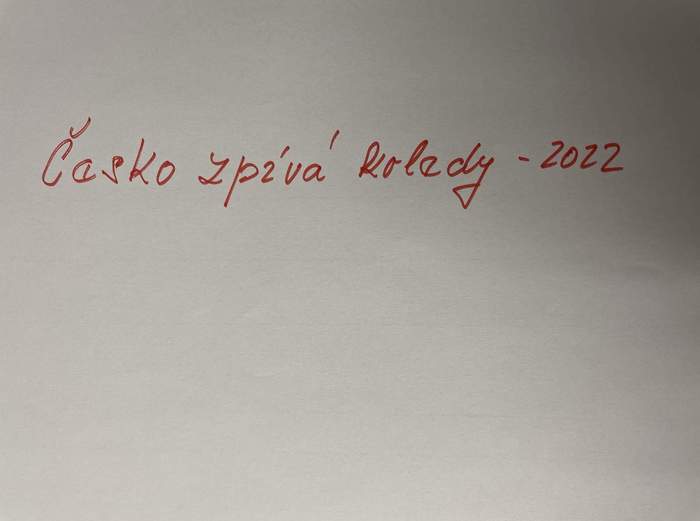 Česko zpívá koledy - 2022